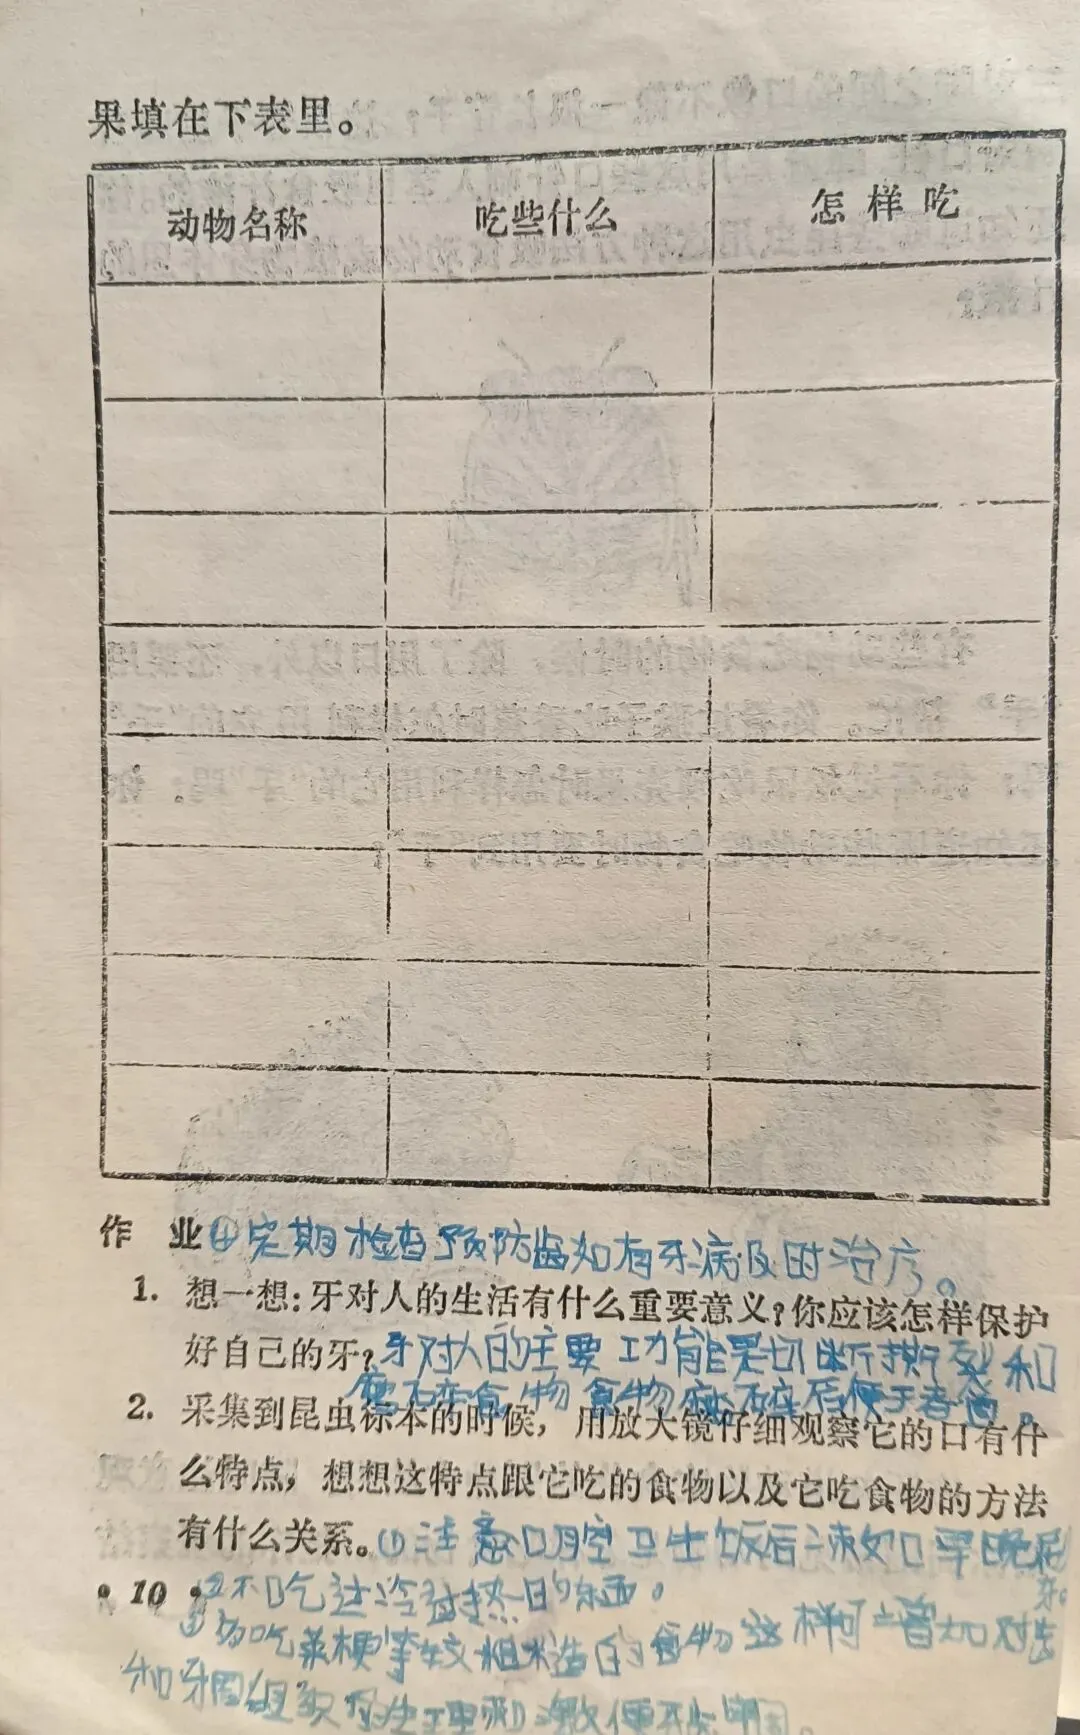 果填在下表里。
动物名称 吃些什么 怎样吃
作 业 ④定期检查预防龋如有牙病及时治疗。
1. 想一想：牙对人的生活有什么重要意义？你应该怎样保护
好自己的牙？牙对人的主要功能是切断撕裂和
食物食物
2. 采集到昆虫标本的时候，用放大镜仔细观察它的口有什
么特点，想想这特点跟它吃的食物以及它吃食物的方法
有什么关系。①注意口腔卫生饭后漱口早晚刷
牙。
• 10 • ②不吃过冷过热的东西。
③多吃菜梗等较粗糙的食物这样可增加对齿
和牙周组织的生理刺激使牙